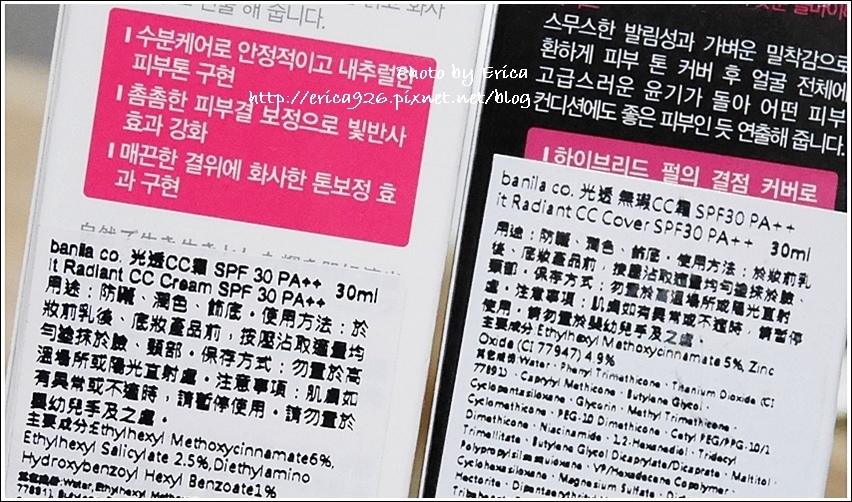 연출 해 줍니다.
I 수분케어로 안정적이고 내추럴한
피부톤 구현
I 촘촘한 피부결 보정으로 빛반사
효과 강화
I 매끈한 결위에 화사한 톤보정 효
과 구현
banila co. 光透CC霜 SPF 30 PA++ 30ml
it Radiant CC Cream SPF 30 PA++
用途：防曬、潤色、飾底。使用方法：於
妝前乳後、底妝產品前，按壓沾取適量均
勻塗抹於臉、頸部。保存方式：勿置於高
溫場所或陽光直射處。注意事項：肌膚如
有異常或不適時，請暫停使用。請勿置於
嬰幼兒手及之處。
主要成分:Ethylhexyl Methoxycinnamate6%,
Ethylhexyl Salicylate 2.5%,Diethylamino
Hydroxybenzoyl Hexyl Benzoate1%
其它成份:Water, Ethylhexyl
Photo by Erica
http://erica926.pixnet.net/blog
스무스한 발림성과 가벼운 밀착감으로
환하게 피부 톤 커버 후 얼굴 전체에
고급스러운 윤기가 돌아 어떤 피부
컨디션에도 좋은 피부인 듯 연출해 줍니다.
I 하이브리드 펄의 결점 커버로
banila co. 光透 無瑕CC霜 SPF30 PA++
it Radiant CC Cover SPF30 PA++ 30ml
用途：防曬、潤色、飾底。使用方法：於妝前乳
後、底妝產品前，按壓沾取適量均勻塗抹於臉、
頸部。保存方式：勿置於高溫場所或陽光直射
處。注意事項：肌膚如有異常或不適時，請暫停
使用。請勿置於嬰幼兒手及之處。
主要成分 Ethylhexyl Methoxycinnamate 5%, Zinc
Oxide (CI 77947) 4.9%
其它成份 Water、Phenyl Trimethicone、Titanium Dioxide (CI
77891)、Caprylyl Methicone、Butylene Glycol、
Cyclopentasiloxane、Glycerin、Methyl Trimethicone、
Cyclomethicone、PEG-10 Dimethicone、Cetyl PEG/PPG-10/1
Dimethicone、Niacinamide、1,2-Hexanediol、Tridecyl
Trimellitate、Butylene Glycol Dicaprylate/Dicaprate、Maltitol、
Polypropylsilsesquioxane、VP/Hexadecene Copolymer、
Cyclohexasiloxane、Magnesium Sulfate、
Hectorite、